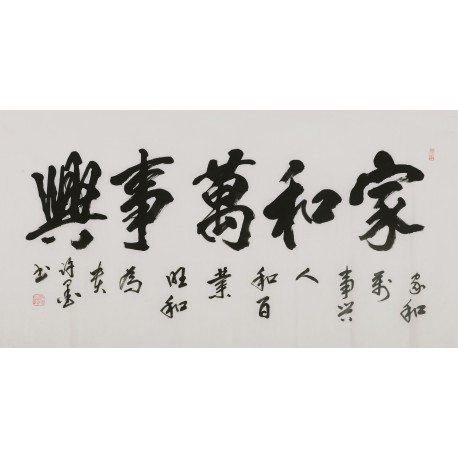 家和萬事興
家和
萬
事兴
人
和百
業
旺和
為
貴
许墨
书